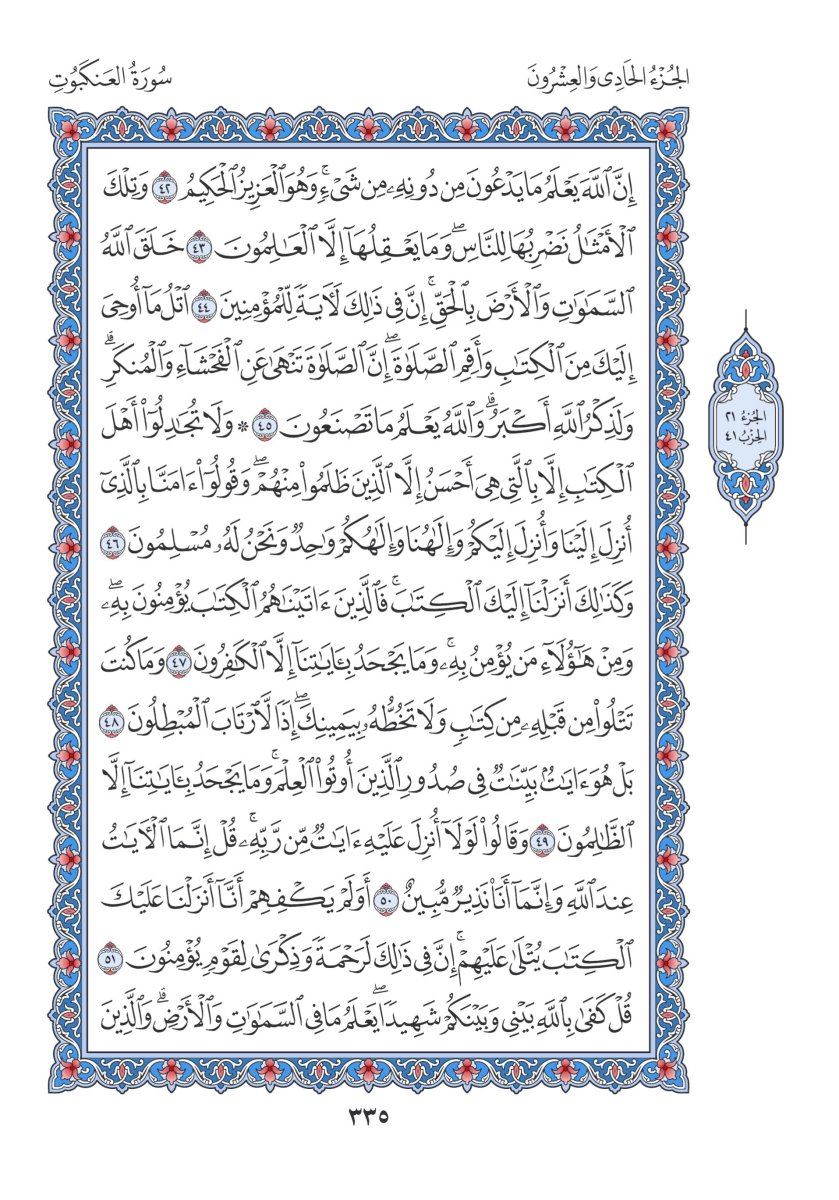 الجُزْءُ الحَادِى وَالعِشْرُونَ
سُورَةُ العَنكَبُوتِ
إِنَّ ٱللَّهَ يَعْلَمُ مَا يَدْعُونَ مِن دُونِهِۦ مِن شَىْءٍۚ وَهُوَ ٱلْعَزِيزُ ٱلْحَكِيمُ ٤٢ وَتِلْكَ
ٱلْأَمْثَٰلُ نَضْرِبُهَا لِلنَّاسِۖ وَمَا يَعْقِلُهَآ إِلَّا ٱلْعَٰلِمُونَ ٤٣ خَلَقَ ٱللَّهُ
ٱلسَّمَٰوَٰتِ وَٱلْأَرْضَ بِٱلْحَقِّۚ إِنَّ فِى ذَٰلِكَ لَءَايَةً لِّلْمُؤْمِنِينَ ٤٤ ٱتْلُ مَآ أُوحِىَ
إِلَيْكَ مِنَ ٱلْكِتَٰبِ وَأَقِمِ ٱلصَّلَوٰةَۖ إِنَّ ٱلصَّلَوٰةَ تَنْهَىٰ عَنِ ٱلْفَحْشَآءِ وَٱلْمُنكَرِۗ
وَلَذِكْرُ ٱللَّهِ أَكْبَرُۗ وَٱللَّهُ يَعْلَمُ مَا تَصْنَعُونَ ٤٥ * وَلَا تُجَٰدِلُوٓا۟ أَهْلَ
ٱلْكِتَٰبِ إِلَّا بِٱلَّتِى هِىَ أَحْسَنُ إِلَّا ٱلَّذِينَ ظَلَمُوا۟ مِنْهُمْۖ وَقُولُوٓا۟ ءَامَنَّا بِٱلَّذِىٓ
أُنزِلَ إِلَيْنَا وَأُنزِلَ إِلَيْكُمْ وَإِلَٰهُنَا وَإِلَٰهُكُمْ وَٰحِدٌ وَنَحْنُ لَهُۥ مُسْلِمُونَ ٤٦
وَكَذَٰلِكَ أَنزَلْنَآ إِلَيْكَ ٱلْكِتَٰبَۚ فَٱلَّذِينَ ءَاتَيْنَٰهُمُ ٱلْكِتَٰبَ يُؤْمِنُونَ بِهِۦۖ
وَمِنْ هَٰٓؤُلَآءِ مَن يُؤْمِنُ بِهِۦۚ وَمَا يَجْحَدُ بِـَٔايَٰتِنَآ إِلَّا ٱلْكَٰفِرُونَ ٤٧ وَمَا كُنتَ
تَتْلُوا۟ مِن قَبْلِهِۦ مِن كِتَٰبٍ وَلَا تَخُطُّهُۥ بِيَمِينِكَۖ إِذًا لَّٱرْتَابَ ٱلْمُبْطِلُونَ ٤٨
بَلْ هُوَ ءَايَٰتٌۢ بَيِّنَٰتٌ فِى صُدُورِ ٱلَّذِينَ أُوتُوا۟ ٱلْعِلْمَۚ وَمَا يَجْحَدُ بِـَٔايَٰتِنَآ إِلَّا
ٱلظَّٰلِمُونَ ٤٩ وَقَالُوا۟ لَوْلَآ أُنزِلَ عَلَيْهِ ءَايَٰتٌ مِّن رَّبِّهِۦۚ قُلْ إِنَّمَا ٱلْءَايَٰتُ
عِندَ ٱللَّهِ وَإِنَّمَآ أَنَا۠ نَذِيرٌ مُّبِينٌ ٥٠ أَوَلَمْ يَكْفِهِمْ أَنَّآ أَنزَلْنَا عَلَيْكَ
ٱلْكِتَٰبَ يُتْلَىٰ عَلَيْهِمْۚ إِنَّ فِى ذَٰلِكَ لَرَحْمَةً وَذِكْرَىٰ لِقَوْمٍ يُؤْمِنُونَ ٥١
قُلْ كَفَىٰ بِٱللَّهِ بَيْنِى وَبَيْنَكُمْ شَهِيدًاۖ يَعْلَمُ مَا فِى ٱلسَّمَٰوَٰتِ وَٱلْأَرْضِۗ وَٱلَّذِينَ
الجُزْءُ ٢١
الحِزْبُ ٤١
٣٣٥